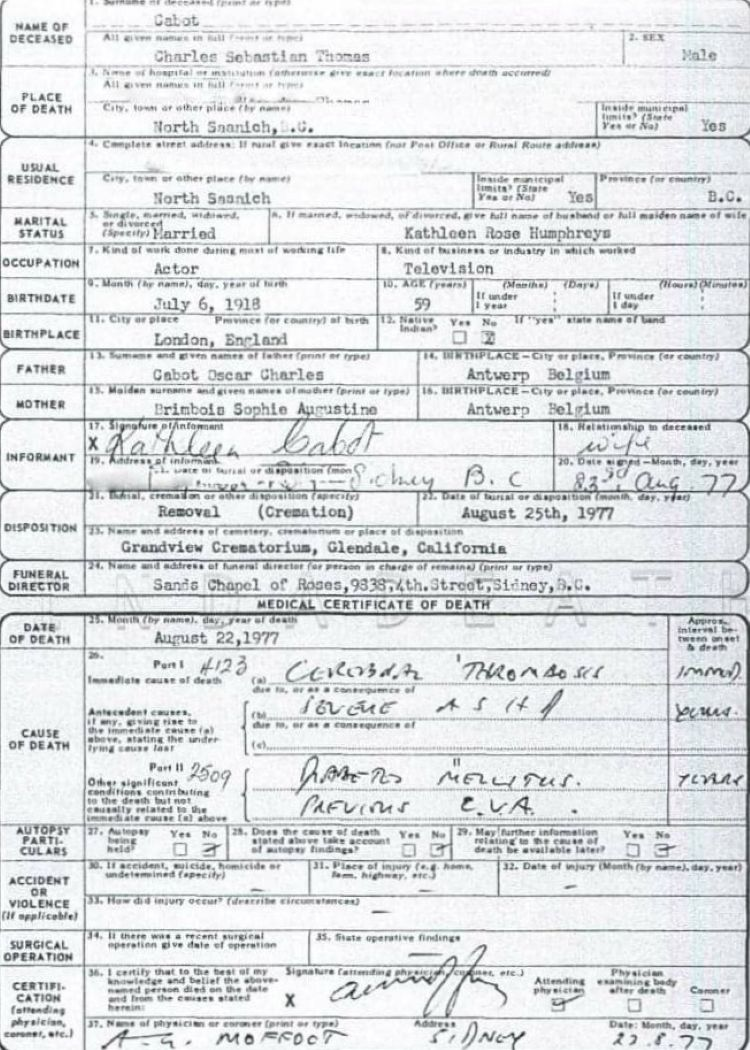 1. Surname of deceased (print or type)
NAME OF DECEASED
Cabot
All given names in full (print or type)
2. SEX
Charles Sebastian Thomas
Male
3. Name of hospital or institution (otherwise give exact location where death occurred)
All given names in full (print or type)
PLACE OF DEATH
City, town or other place (by name)
Inside municipal limits? (State Yes or No)
North Saanich, B.C.
Yes
4. Complete street address: If rural give exact location (not Post Office or Rural Route address)
USUAL RESIDENCE
City, town or other place (by name)
Inside municipal limits? (State Yes or No)
Province (or country)
North Saanich
Yes
B.C.
MARITAL STATUS
5. Single, married, widowed, or divorced (Specify)
Married
6. If married, widowed, or divorced, give full name of husband or full maiden name of wife
Kathleen Rose Humphreys
OCCUPATION
7. Kind of work done during most of working life
8. Kind of business or industry in which worked
Actor
Television
BIRTHDATE
9. Month (by name), day, year of birth
10. AGE (years)
(Months) (Days)
(Hours) (Minutes)
July 6, 1918
59
If under 1 year
If under 1 day
BIRTHPLACE
11. City or place Province (or country) of birth
12. Native Indian?
Yes No
If "yes" state name of band
London, England
FATHER
13. Surname and given names of father (print or type)
14. BIRTHPLACE – City or place, Province (or country)
Cabot Oscar Charles
Antwerp Belgium
MOTHER
15. Maiden surname and given names of mother (print or type)
16. BIRTHPLACE – City or place, Province (or country)
Brimbois Sophie Augustine
Antwerp Belgium
INFORMANT
17. Signature of informant
18. Relationship to deceased
X Kathleen Cabot
wife
19. Address of informant
20. Date signed – Month, day, year
Date of burial or disposition (mon
Sidney B.C
23rd, Aug. 77
DISPOSITION
21. Burial, cremation or other disposition (specify)
22. Date of burial or disposition (month, day, year)
Removal (Cremation)
August 25th, 1977
23. Name and address of cemetery, crematorium or place of disposition
Grandview Crematorium, Glendale, California
FUNERAL DIRECTOR
24. Name and address of funeral director (or person in charge of remains) (print or type)
Sands Chapel of Roses,9838,4th.Street,Sidney,B.C.
MEDICAL CERTIFICATE OF DEATH
DATE OF DEATH
25. Month (by name), day, year of death
August 22,1977
Approx. interval between onset & death
CAUSE OF DEATH
26.
Part I 4123
Immediate cause of death
(a) CEREBRAL THROMBOSIS
IMMED.
due to, or as a consequence of
Antecedent causes, if any, giving rise to the immediate cause (a) above, stating the underlying cause last
(b) SEVERE A S H D
years.
due to, or as a consequence of
(c)
Part II 2509
Other significant conditions contributing to the death but not causally related to the immediate cause (a) above
DIABETES MELLITUS.
YEARS
PREVIOUS C.V.A.
AUTOPSY PARTICULARS
27. Autopsy being held?
Yes No
28. Does the cause of death stated above take account of autopsy findings?
Yes No
29. May further information relating to the cause of death be available later?
Yes No
ACCIDENT OR VIOLENCE (If applicable)
30. If accident, suicide, homicide or undetermined (specify)
31. Place of injury (e.g. home, farm, highway, etc.)
32. Date of injury (Month (by name), day, year)
33. How did injury occur? (describe circumstances)
SURGICAL OPERATION
34. If there was a recent surgical operation give date of operation
35. State operative findings
CERTIFICATION (attending physician, coroner, etc.)
36. I certify that to the best of my knowledge and belief the above-named person died on the date and from the causes stated herein:
Signature (attending physician, coroner, etc.)
X
Attending physician
Physician examining body after death
Coroner
37. Name of physician or coroner (print or type)
Address
Date: Month, day, year
A.G. MOFFOOT
SIDNEY
23.8.77